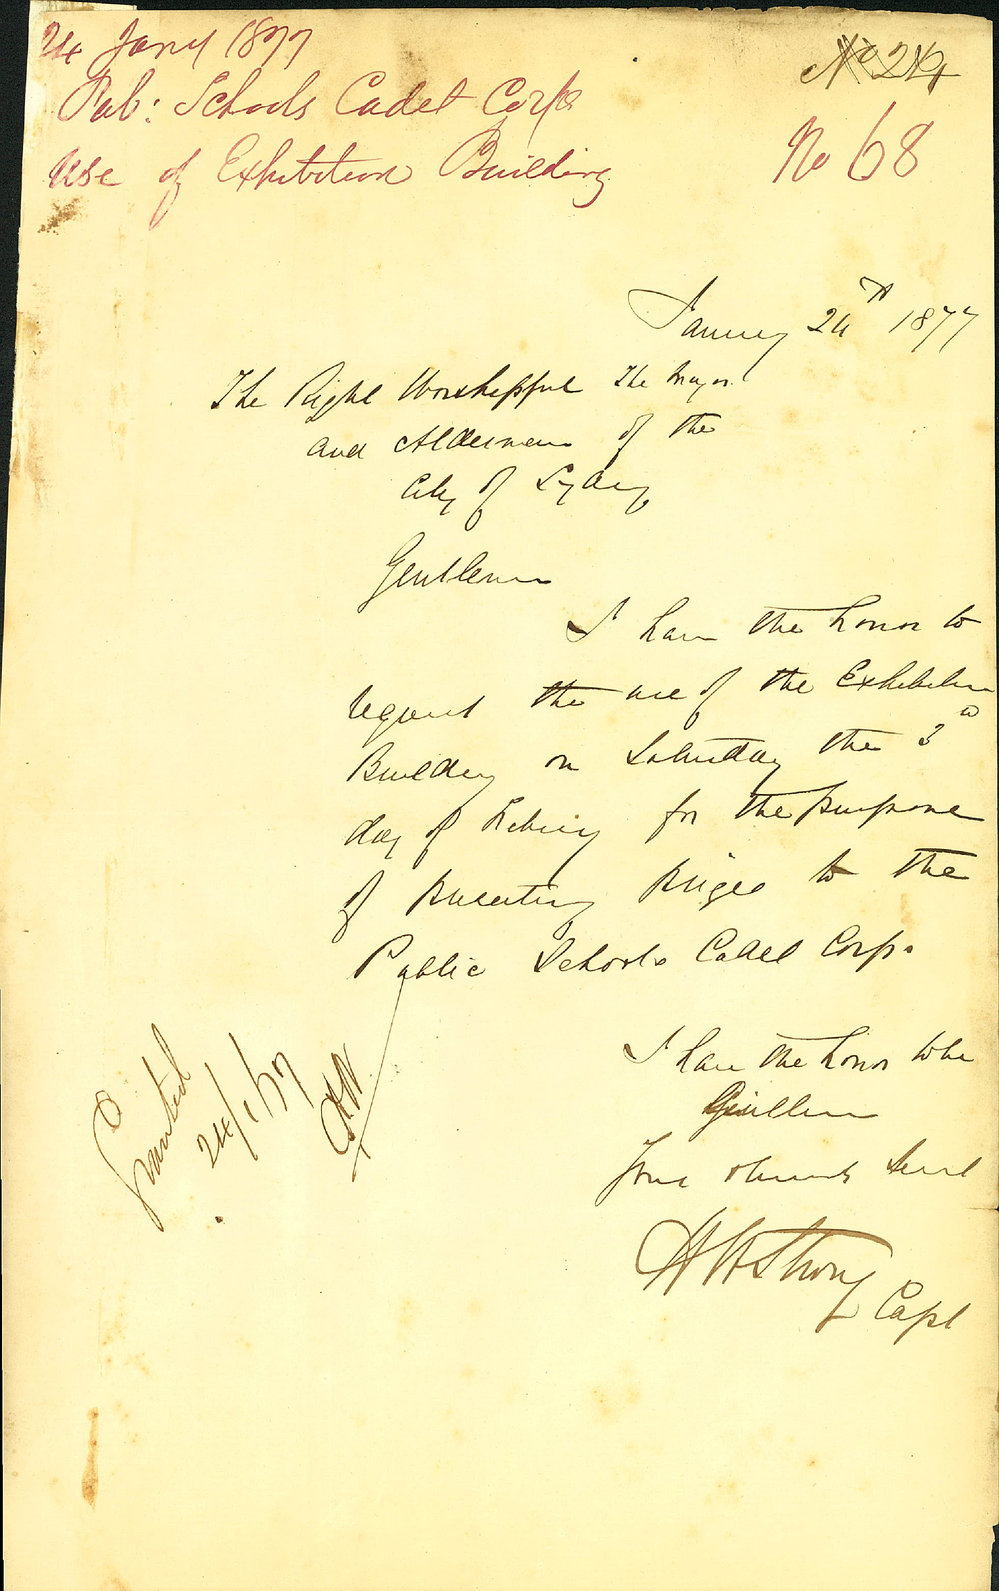 24 Jany 1877
Pub: Schools Cadet Corps
Use of Exhibition Building
No 68
January 24th 1877
The Right Worshipful The Mayor
and Aldermen of the
City of Sydney
Gentlemen
I have the honor to
request the use of the Exhibition
Building on Saturday the 3d
day of February for the purpose
of presenting prizes to the
Public Schools Cadet Corps.
I have the honor to be
Gentlemen
Your obedient Servt
Strong
Capt
Granted
24/1/77